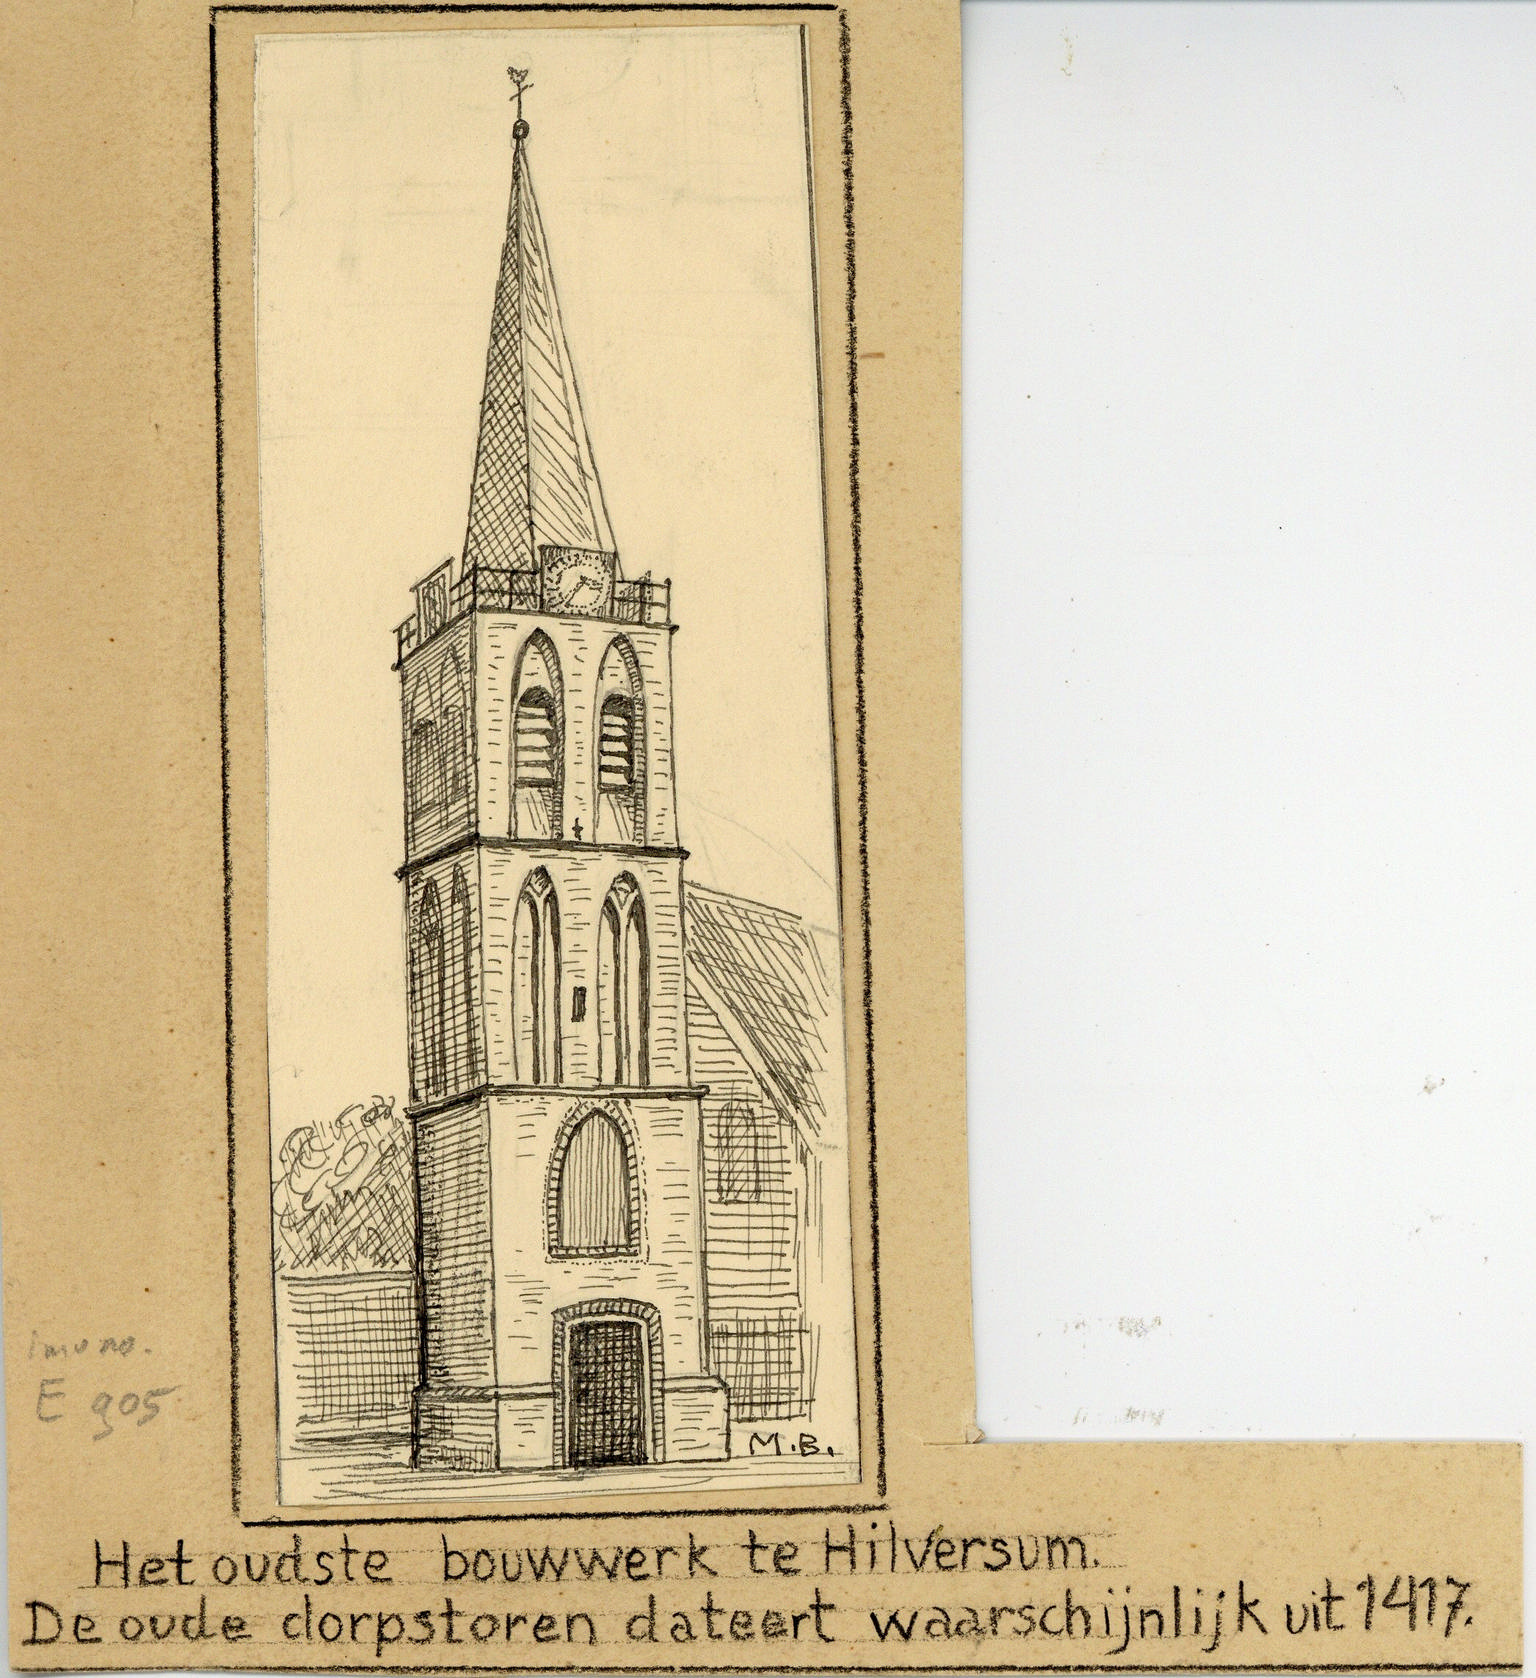 M.B.
E 905
Het oudste bouwwerk te Hilversum.
De oude dorpstoren dateert waarschijnlijk uit 1417.